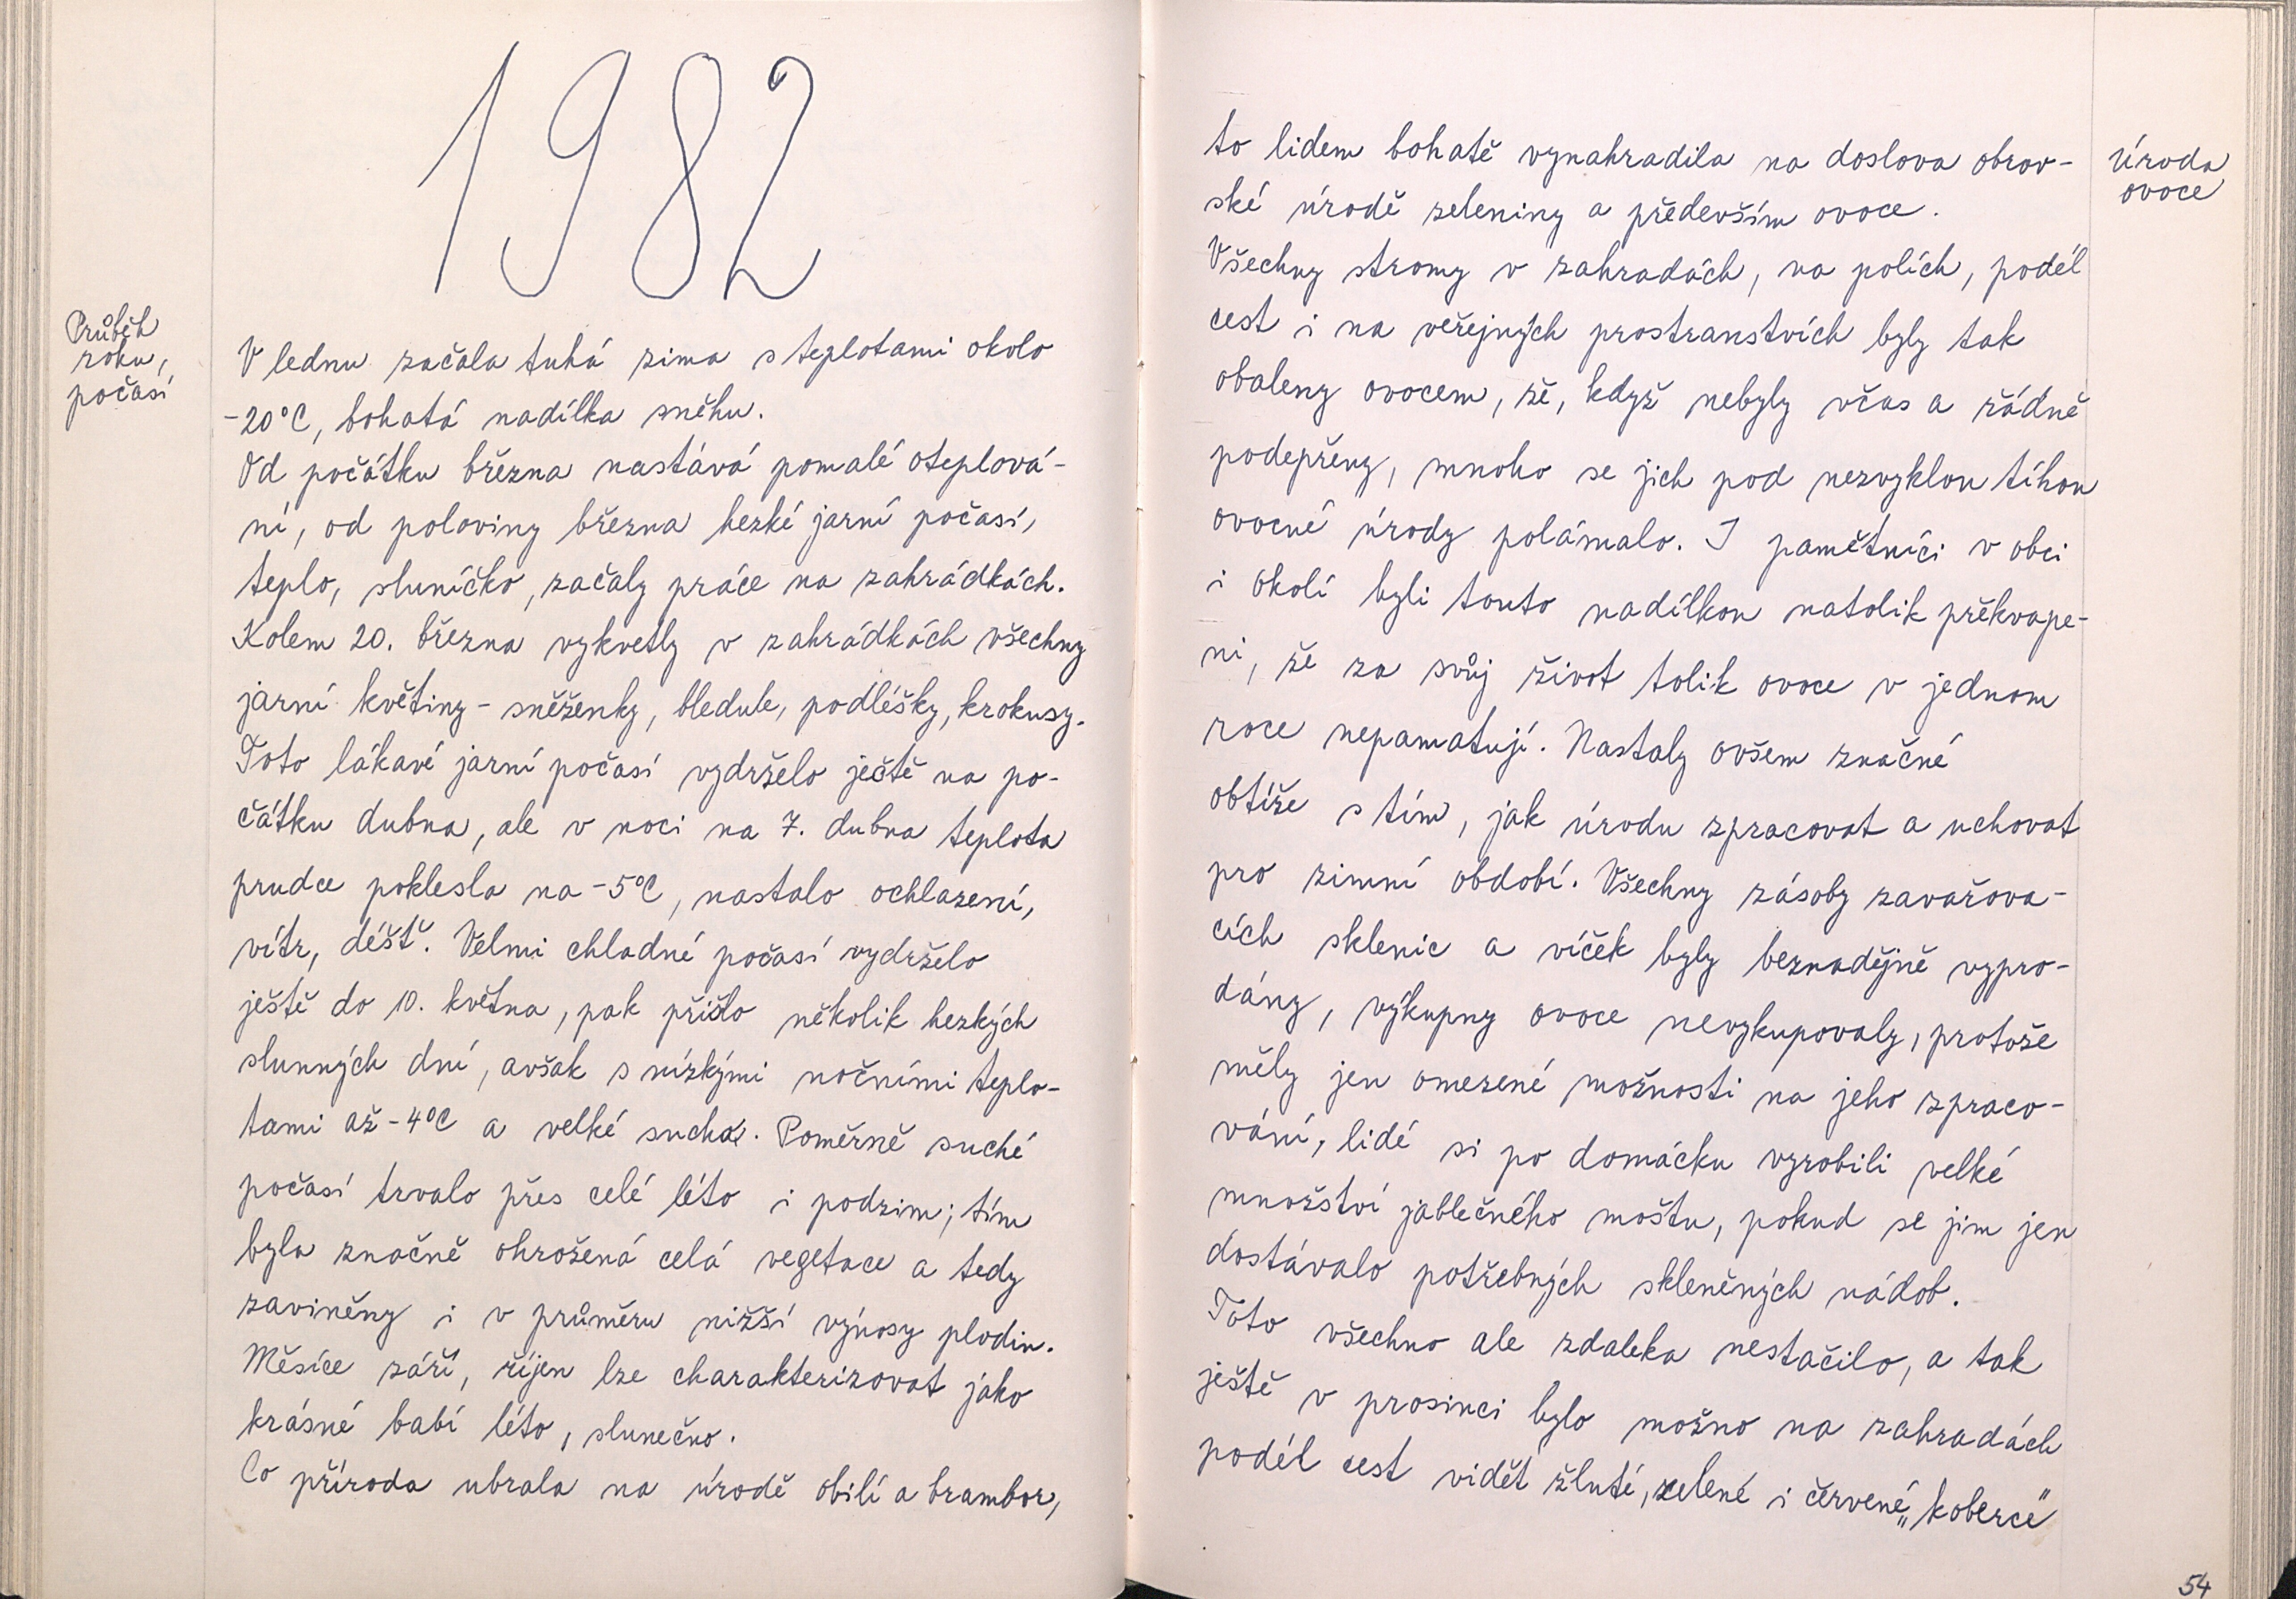 1982
Průběh
roku,
počasí
V lednu začala tuhá zima s teplotami okolo
-20°C, bohatá nadílka sněhu.
Od počátku března nastává pomalé oteplová-
ní, od poloviny března hezké jarní počasí,
teplo, sluníčko, začaly práce na zahrádkách.
Kolem 20. března vykvetly v zahrádkách všechny
jarní květiny - sněženky, bledule, podléšky, krokusy.
Toto lákavé jarní počasí vydrželo ještě na po-
čátku dubna, ale v noci na 7. dubna teplota
prudce poklesla na -5°C, nastalo ochlazení,
vítr, déšť. Velmi chladné počasí vydrželo
ještě do 10. května, pak přišlo několik hezkých
slunných dní, avšak s nízkými nočními teplo-
tami až -4°C a velké sucho. Poměrně suché
počasí trvalo přes celé léto i podzim; tím
byla značně ohrožená celá vegetace a tedy
zaviněny i v průměru nižší výnosy plodin.
Měsíce září, říjen lze charakterizovat jako
krásné babí léto, slunečno.
Co příroda ubrala na úrodě obilí a brambor,
to lidem bohatě vynahradila na doslova obrov-
ské úrodě zeleniny a především ovoce.
Úroda
ovoce
Všechny stromy v zahradách, na polích, podél
cest i na veřejných prostranstvích byly tak
obaleny ovocem, že, když nebyly včas a řádně
podepřeny, mnoho se jich pod nezvyklou tíhou
ovocné úrody polámalo. I pamětníci v obci
i okolí byli touto nadílkou natolik překvape-
ni, že za svůj život tolik ovoce v jednom
roce nepamatují. Nastaly ovšem značné
obtíže s tím, jak úrodu zpracovat a uchovat
pro zimní období. Všechny zásoby zavařova-
cích sklenic a víček byly beznadějně vypro-
dány, výkupny ovoce nevykupovaly, protože
měly jen omezené možnosti na jeho zpraco-
vání, lidé si po domácku vyrobili velké
množství jablečného moštu, pokud se jim jen
dostávalo potřebných skleněných nádob.
Toto všechno ale zdaleka nestačilo, a tak
ještě v prosinci bylo možno na zahradách
podél cest vidět žluté, zelené i červené „koberce"
54